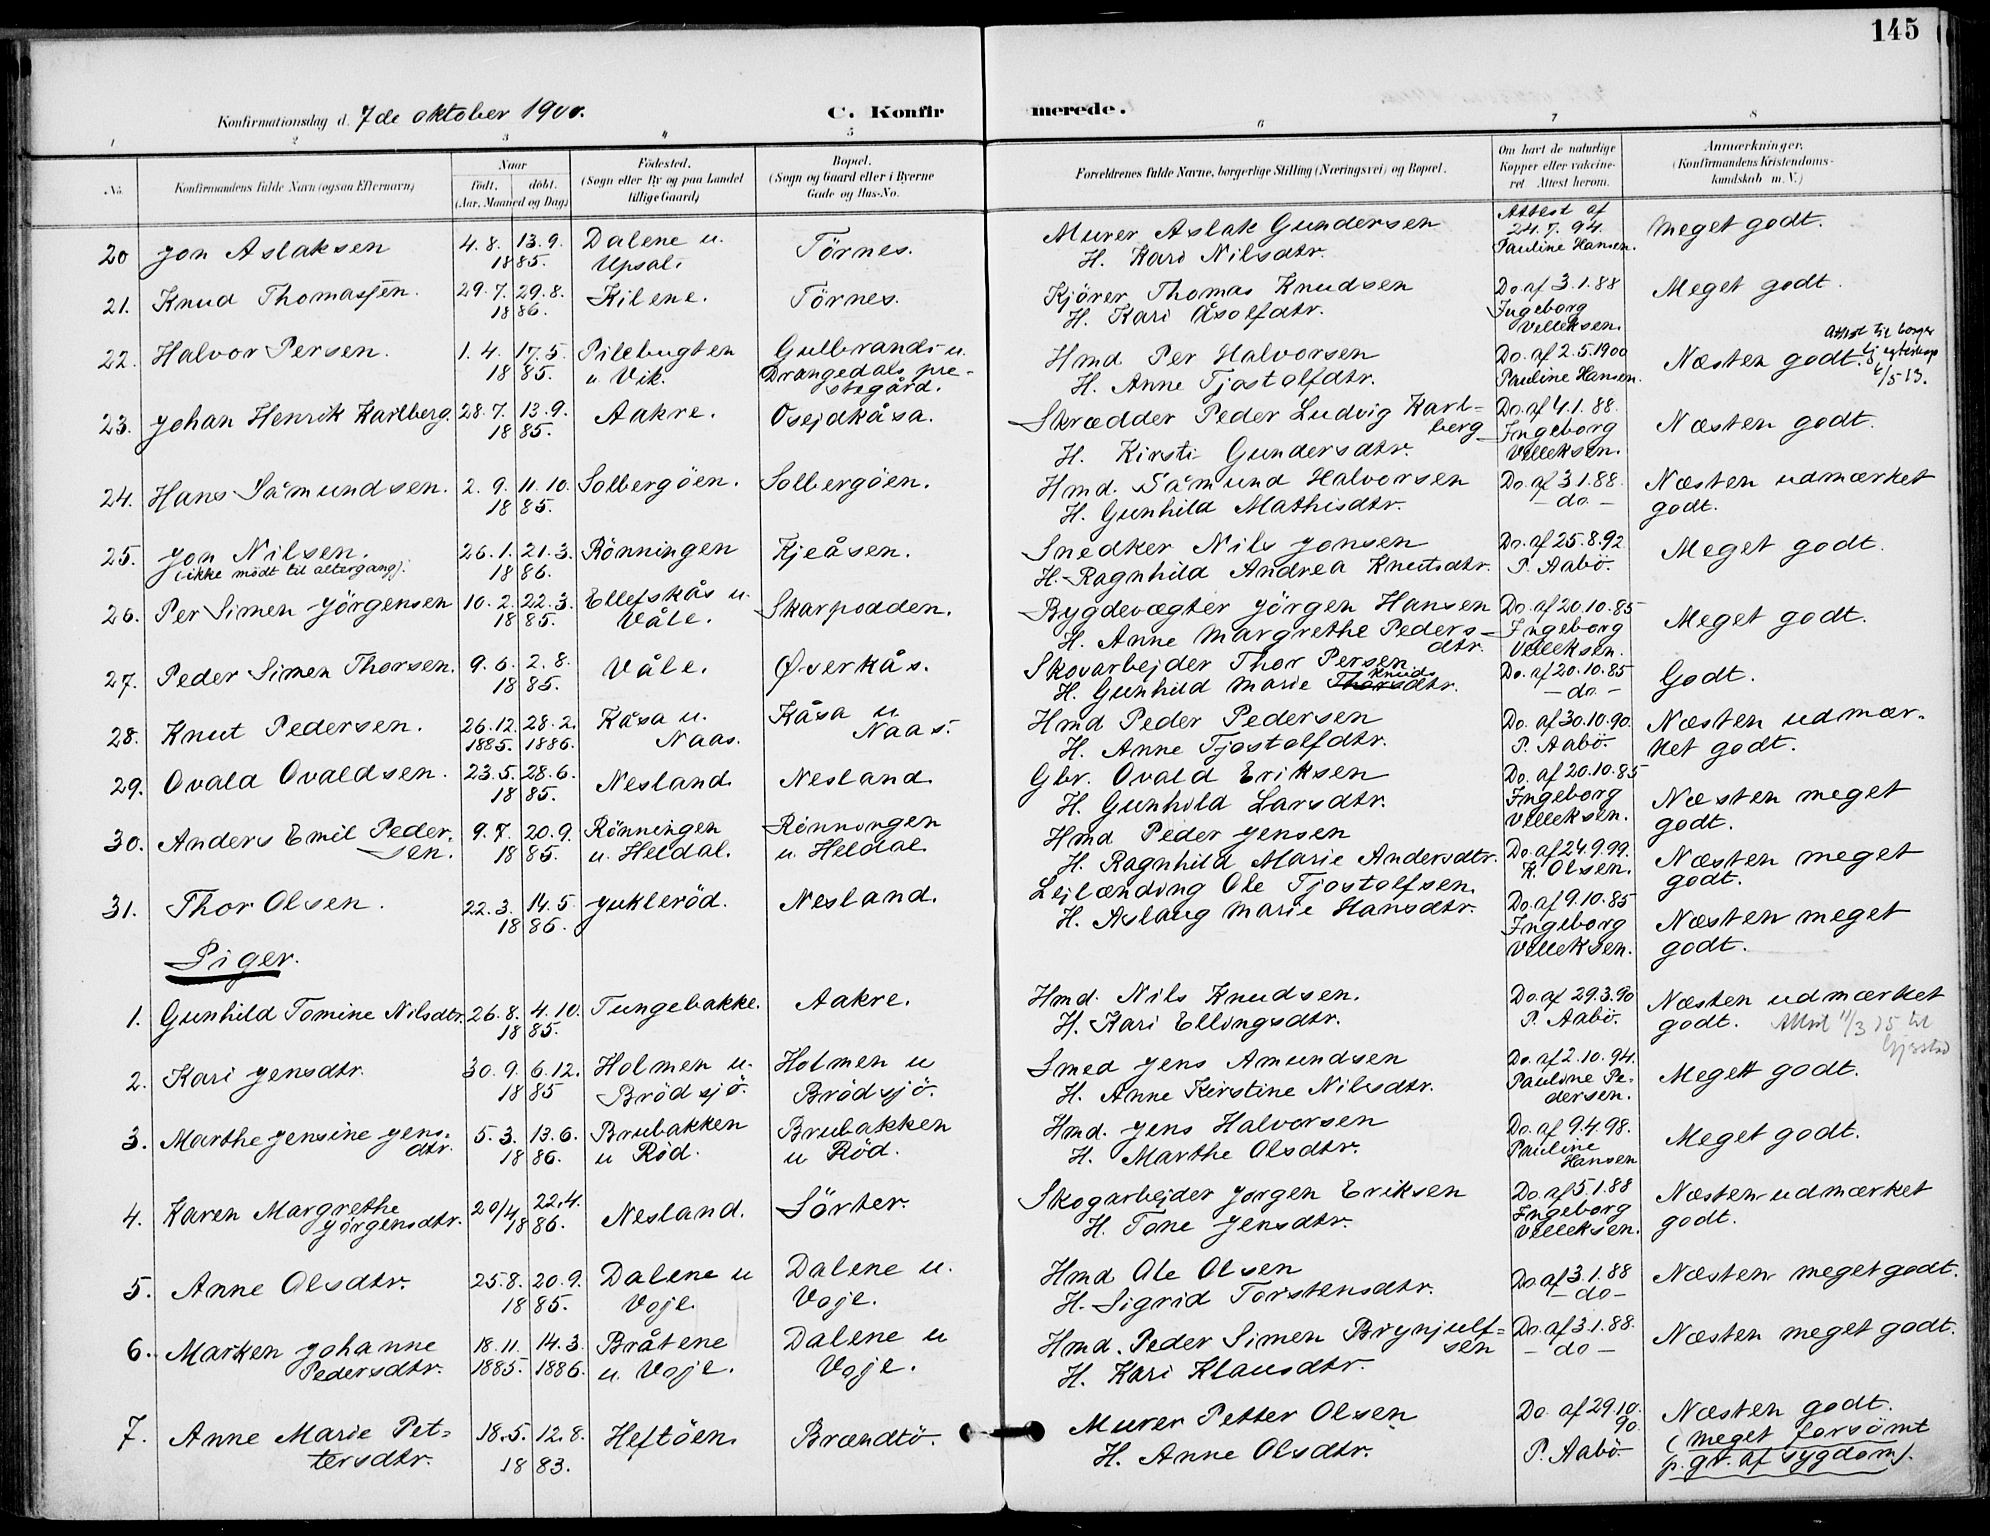 145
Konfirmationsdag d. 7de oktober 1900.
C. Konfir merede.
1 2 3 4 5 6 7 8
No.
Konfirmandens fulde Navn (ogsaa Efternavn)
Naar
født. døbt.
(Aar, Maaned og Dag)
Födested.
(Sogn eller By og paa Landet
tillige Gaard)
Bopæl.
(Sogn og Gaard eller i Byerne
Gade og Hus-No.
Forældrenes fulde Navne, borgerlige Stilling (Næringsvei) og Bopæl.
Om havt de naturlige
Kopper eller vakcine-
ret Attest herom.
Anmærkninger.
(Konfirmandens Kristendoms-
kundskab m. V.)
20 Jon Aslaksen 4.8. 13.9. 1885. Dalene u. Upsal. Törnes. Murer Aslak Gundersen Attest af 24.7.94. Meget godt.
H. Kari Nilsdtr. Pauline Hansen.
21. Knud Thomassen. 29.7. 29.8. 1886. Kilene. Törnes. Kjörer Thomas Knudsen Do. af 3.1.88 Meget godt.
H. Kari Åsolfdtr. Ingeborg Velleksen.
22. Halvor Persen. 1.4. 17.5. 1885. Pilebugten u Vik. Gulbrands u. Drangedals pre-
stegård.
Hmd Per Halvorsen Do. af 2.5.1900 Næsten godt. Attest til borger
H. Anne Tjostolfdtr. Pauline Hansen. 5/5 13.
23. Johan Henrik Karlberg. 28.7. 13.9. 1885. Aakre. Osejdkåsa. Skrædder Peder Ludvig Karl-
berg Do. af 4.1.88. Næsten godt.
H. Kirsti Gundersdtr. Ingeborg Velleksen.
24. Hans Såmundsen. 2.9. 11.10. 1885. Solbergöen. Solbergöen. Hmd. Såmund Halvorsen Do. af 3.1.88. Næsten udmærket
H. Gunhild Mathisdtr. — do — godt.
25. Jon Nilsen. 26.1. 21.3. 1886. Rönningen Kjeåsen. Snedker Nils Jonsen Do. af 25.8.92 Meget godt.
(ikke mödt til altergang). H. Ragnhild Andrea Knutsdtr. P. Aabö.
26. Per Simen Jörgensen 10.2. 22.3. 1885. Ellefskås u. Våle. Skarpodden. Bygdevægter Jörgen Hansen Do. af 20.10.85 Meget godt.
H. Anne Margrethe Peders-
dtr. Ingeborg Velleksen.
27. Peder Simen Thorsen. 9.6. 2.8. 1885. Våle. Øverkås. Skovarbejder Thor Persen. Do. af 20.10.85 Godt.
H. Gunhild Marie Thorsdtr. Knuds — do —
28. Knut Pedersen. 26.12. 1885. 28.2. 1886. Kåsa u. Naas. Kåsa u Naas. Hmd Peder Pedersen Do. af 30.10.90. Næsten udmær-
H. Anne Tjostolfdtr. P. Aabö. ket godt.
29. Ovald Ovaldsen. 23.5. 28.6. 1885. Nesland. Nesland. Gbr. Ovald Eriksen Do. af 20.10.85 Næsten meget
H. Gunhild Larsdtr. Ingeborg Velleksen. godt.
30. Anders Emil Peder-
sen. 9.7. 20.9. 1885. Rönningen u. Heldal. Rönningen u. Heldal. Hmd Peder Jensen Do. af 24.9.99. Næsten meget
H. Ragnhild Marie Andersdtr. K. Olsen. godt.
31. Thor Olsen. 22.3. 14.5. 1886. Jukleröd. Nesland. Lejlænding Ole Tjostolfsen. Do. af 9.10.85 Næsten meget
H. Aslaug Marie Hansdtr. Ingeborg Velleksen. godt.
Piger.
1. Gunhild Tomine Nilsdtr. 26.8. 4.10. 1885. Tungebakke. Aakre. Hmd. Nils Knudsen. Do. af 29.3.90 Næsten udmærket
H. Kari Ellingsdtr. P. Aabö. godt. Attest 11/3 15 til Gjerstad
2. Kari Jensdtr. 30.9. 6.12. 1885 Holmen u. Brödsjö. Holmen u Brödsjö. Smed Jens Amundsen Do. af 2.10.94. Meget godt.
H. Anne Kirstine Nilsdtr. Pauline Pe-
dersen.
3. Marthe Jensine Jens-
dtr. 5.3. 13.6. 1886. Brubakken u Röd. Brubakken u Röd. Hmd. Jens Halvorsen Do. af 9.4.98. Meget godt.
H. Marthe Olsdtr. Pauline Hansen
4. Karen Margrethe
Jörgensdtr. 20/4 22.4. 1886. Nesland. Sörter. Skogarbejder Jorgen Eriksen Do. af 5.1.88 Næsten udmærket
H. Tone Jensdtr. Ingeborg Velleksen. godt.
5. Anne Olsdtr. 25.8. 20.9. 1885. Dalene u Voje. Dalene u. Voje. Hmd Ole Olsen Do. af 3.1.88 Næsten meget godt.
H. Sigrid Torstensdtr. — do —
6. Marken Johanne
Pedersdtr. 18.11. 1885. 14.3. 1886. Bråtene u. Voje. Dalene u Voje. Hmd. Peder Simen Brynjulf-
sen Do. af 3.1.88. Næsten meget godt.
H. Kari Klausdtr. — do —
7. Anne Marie Pet-
tersdtr. 18.5. 12.8. 1883. Heftöen. Brændtö. Murer Petter Olsen Do af 29.10.90. Næsten godt.
H. Anne Olsdtr. P. Aabö. (meget forsömt
p. gr. af sygdom).